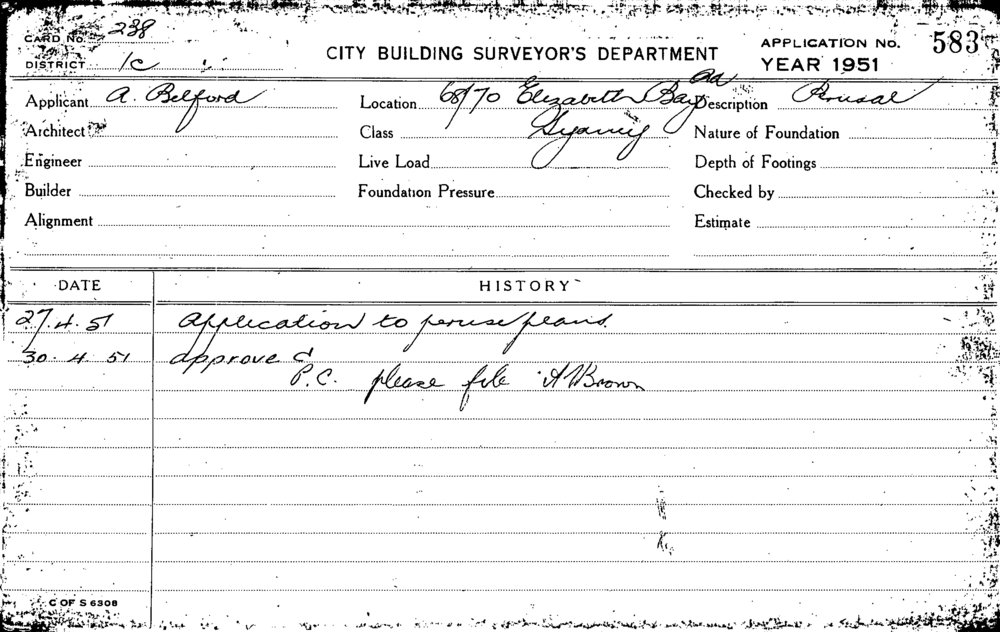 CARD No. 288
DISTRICT 1C
CITY BUILDING SURVEYOR'S DEPARTMENT
APPLICATION No. 583
YEAR 1951
Applicant A. Belford
Location 68/70 Elizabeth Bay Rd
Description Perusal
Architect
Class
Nature of Foundation
Engineer
Live Load
Depth of Footings
Builder
Foundation Pressure
Checked by
Alignment
Estimate
DATE HISTORY
27.4.51 Application to peruse plans.
30.4.51 approve
P.C. please file A Brown
C OF S 6308